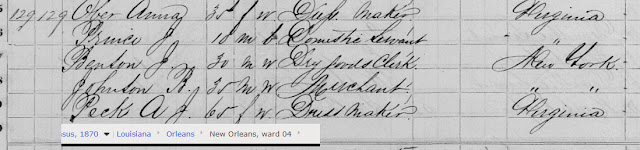 129 129 Ober Anna 35 f w Maker Virginia
Prince J. 10 m b Domestic Servant "
Benson J. 30 m w Dry goods Clerk New York
Johnson R. 30 m w Merchant " "
Peck A J. 60 f w Dress Maker Virginia
sus, 1870 ▾ Louisiana › Orleans › New Orleans, ward 04 ›